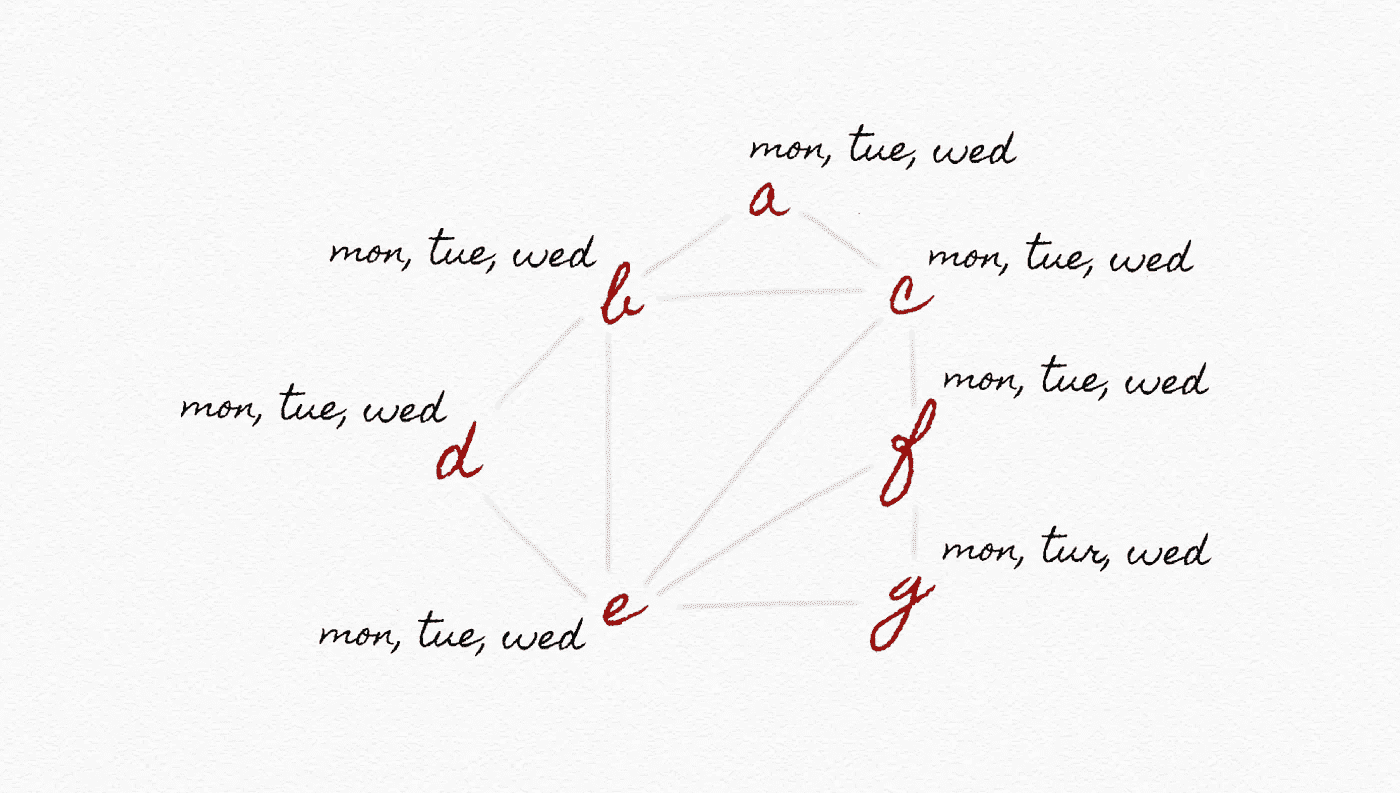 mon, tue, wed
a
mon, tue, wed
b
mon, tue, wed
c
mon, tue, wed
f
mon, tue, wed
d
mon, tur, wed
g
e
mon, tue, wed